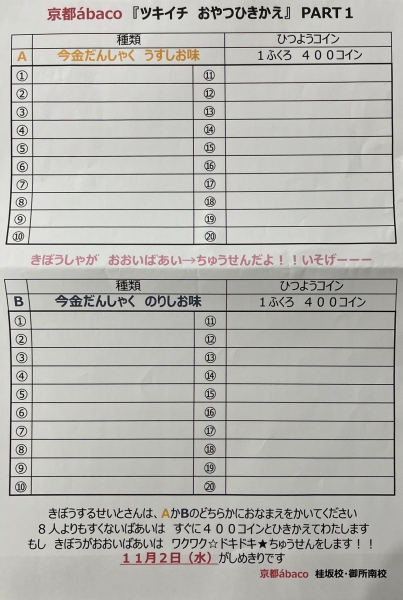 京都ábaco 『ツキイチ おやつひきかえ』 PART１
種類 ひつようコイン
A 今金だんしゃく うすしお味 １ふくろ ４００コイン
① ⑪
② ⑫
③ ⑬
④ ⑭
⑤ ⑮
⑥ ⑯
⑦ ⑰
⑧ ⑱
⑨ ⑲
⑩ ⑳
きぼうしゃが おおいばあい→ちゅうせんだよ！！いそげーーー
種類 ひつようコイン
B 今金だんしゃく のりしお味 １ふくろ ４００コイン
① ⑪
② ⑫
③ ⑬
④ ⑭
⑤ ⑮
⑥ ⑯
⑦ ⑰
⑧ ⑱
⑨ ⑲
⑩ ⑳
きぼうするせいとさんは、AかBのどちらかにおなまえをかいてください
８人よりもすくないばあいは すぐに４００コインとひきかえてわたします
もし きぼうがおおいばあいは ワクワク☆ドキドキ★ちゅうせんをします！！
１１月２日（水）がしめきりです
京都ábaco 桂坂校・御所南校